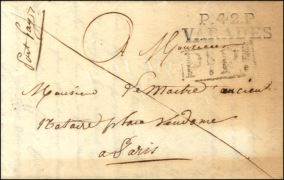 P.42.P.
VARADES
Port payé
P.P.
A Monsieur
Monsieur Le Maitre ancient
Notaire place Vendome
a Paris